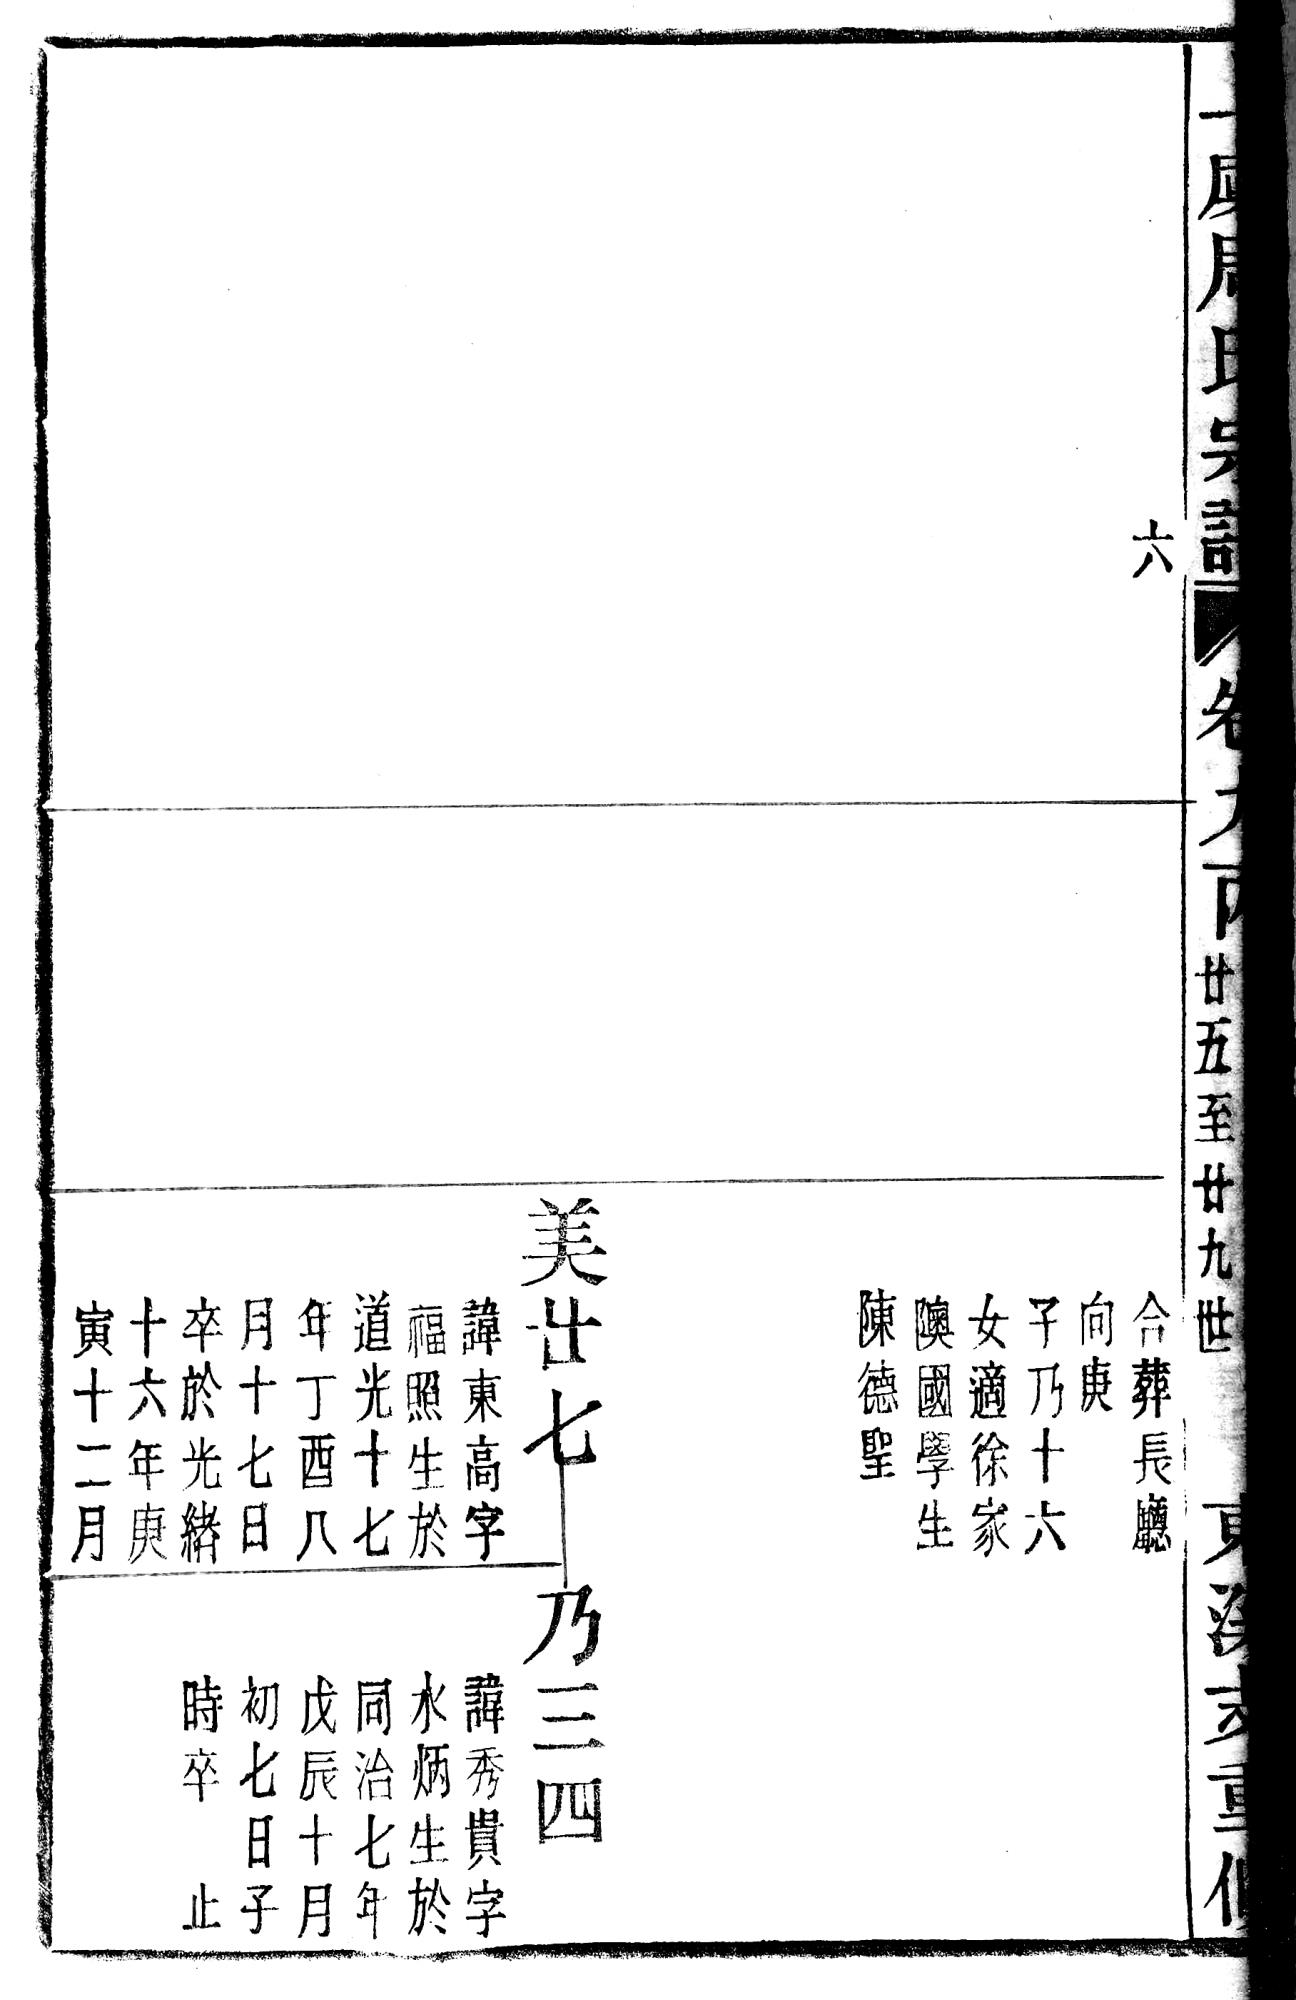 周氏宗譜
卷九
廿五至廿九世
東溪
重修
六
合葬長廳
向庚
子乃十六
女適徐家
隩國學生
陳德聖
美廿七
諱東高字
福照生於
道光十七
年丁酉八
月十七日
卒於光緒
十六年庚
寅十二月
乃三四
諱秀貴字
水炳生於
同治七年
戊辰十月
初七日子
時卒　止